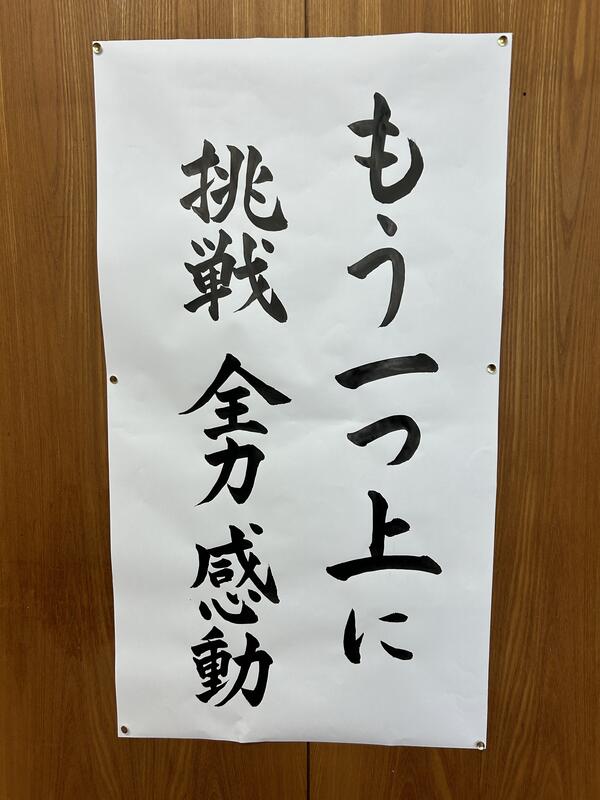 もう一つ上に
挑戦 全力 感動